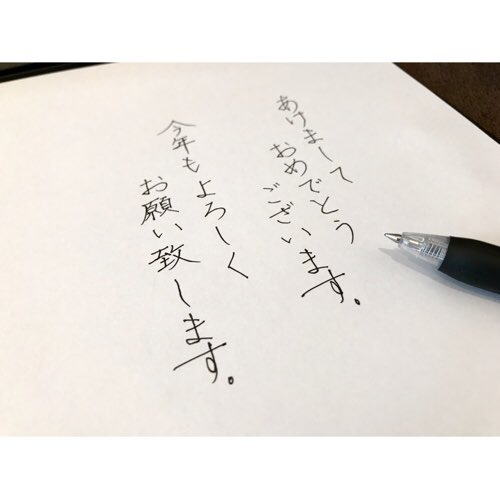 あけまして
おめでとう
ございます。
今年もよろしく
お願い致します。